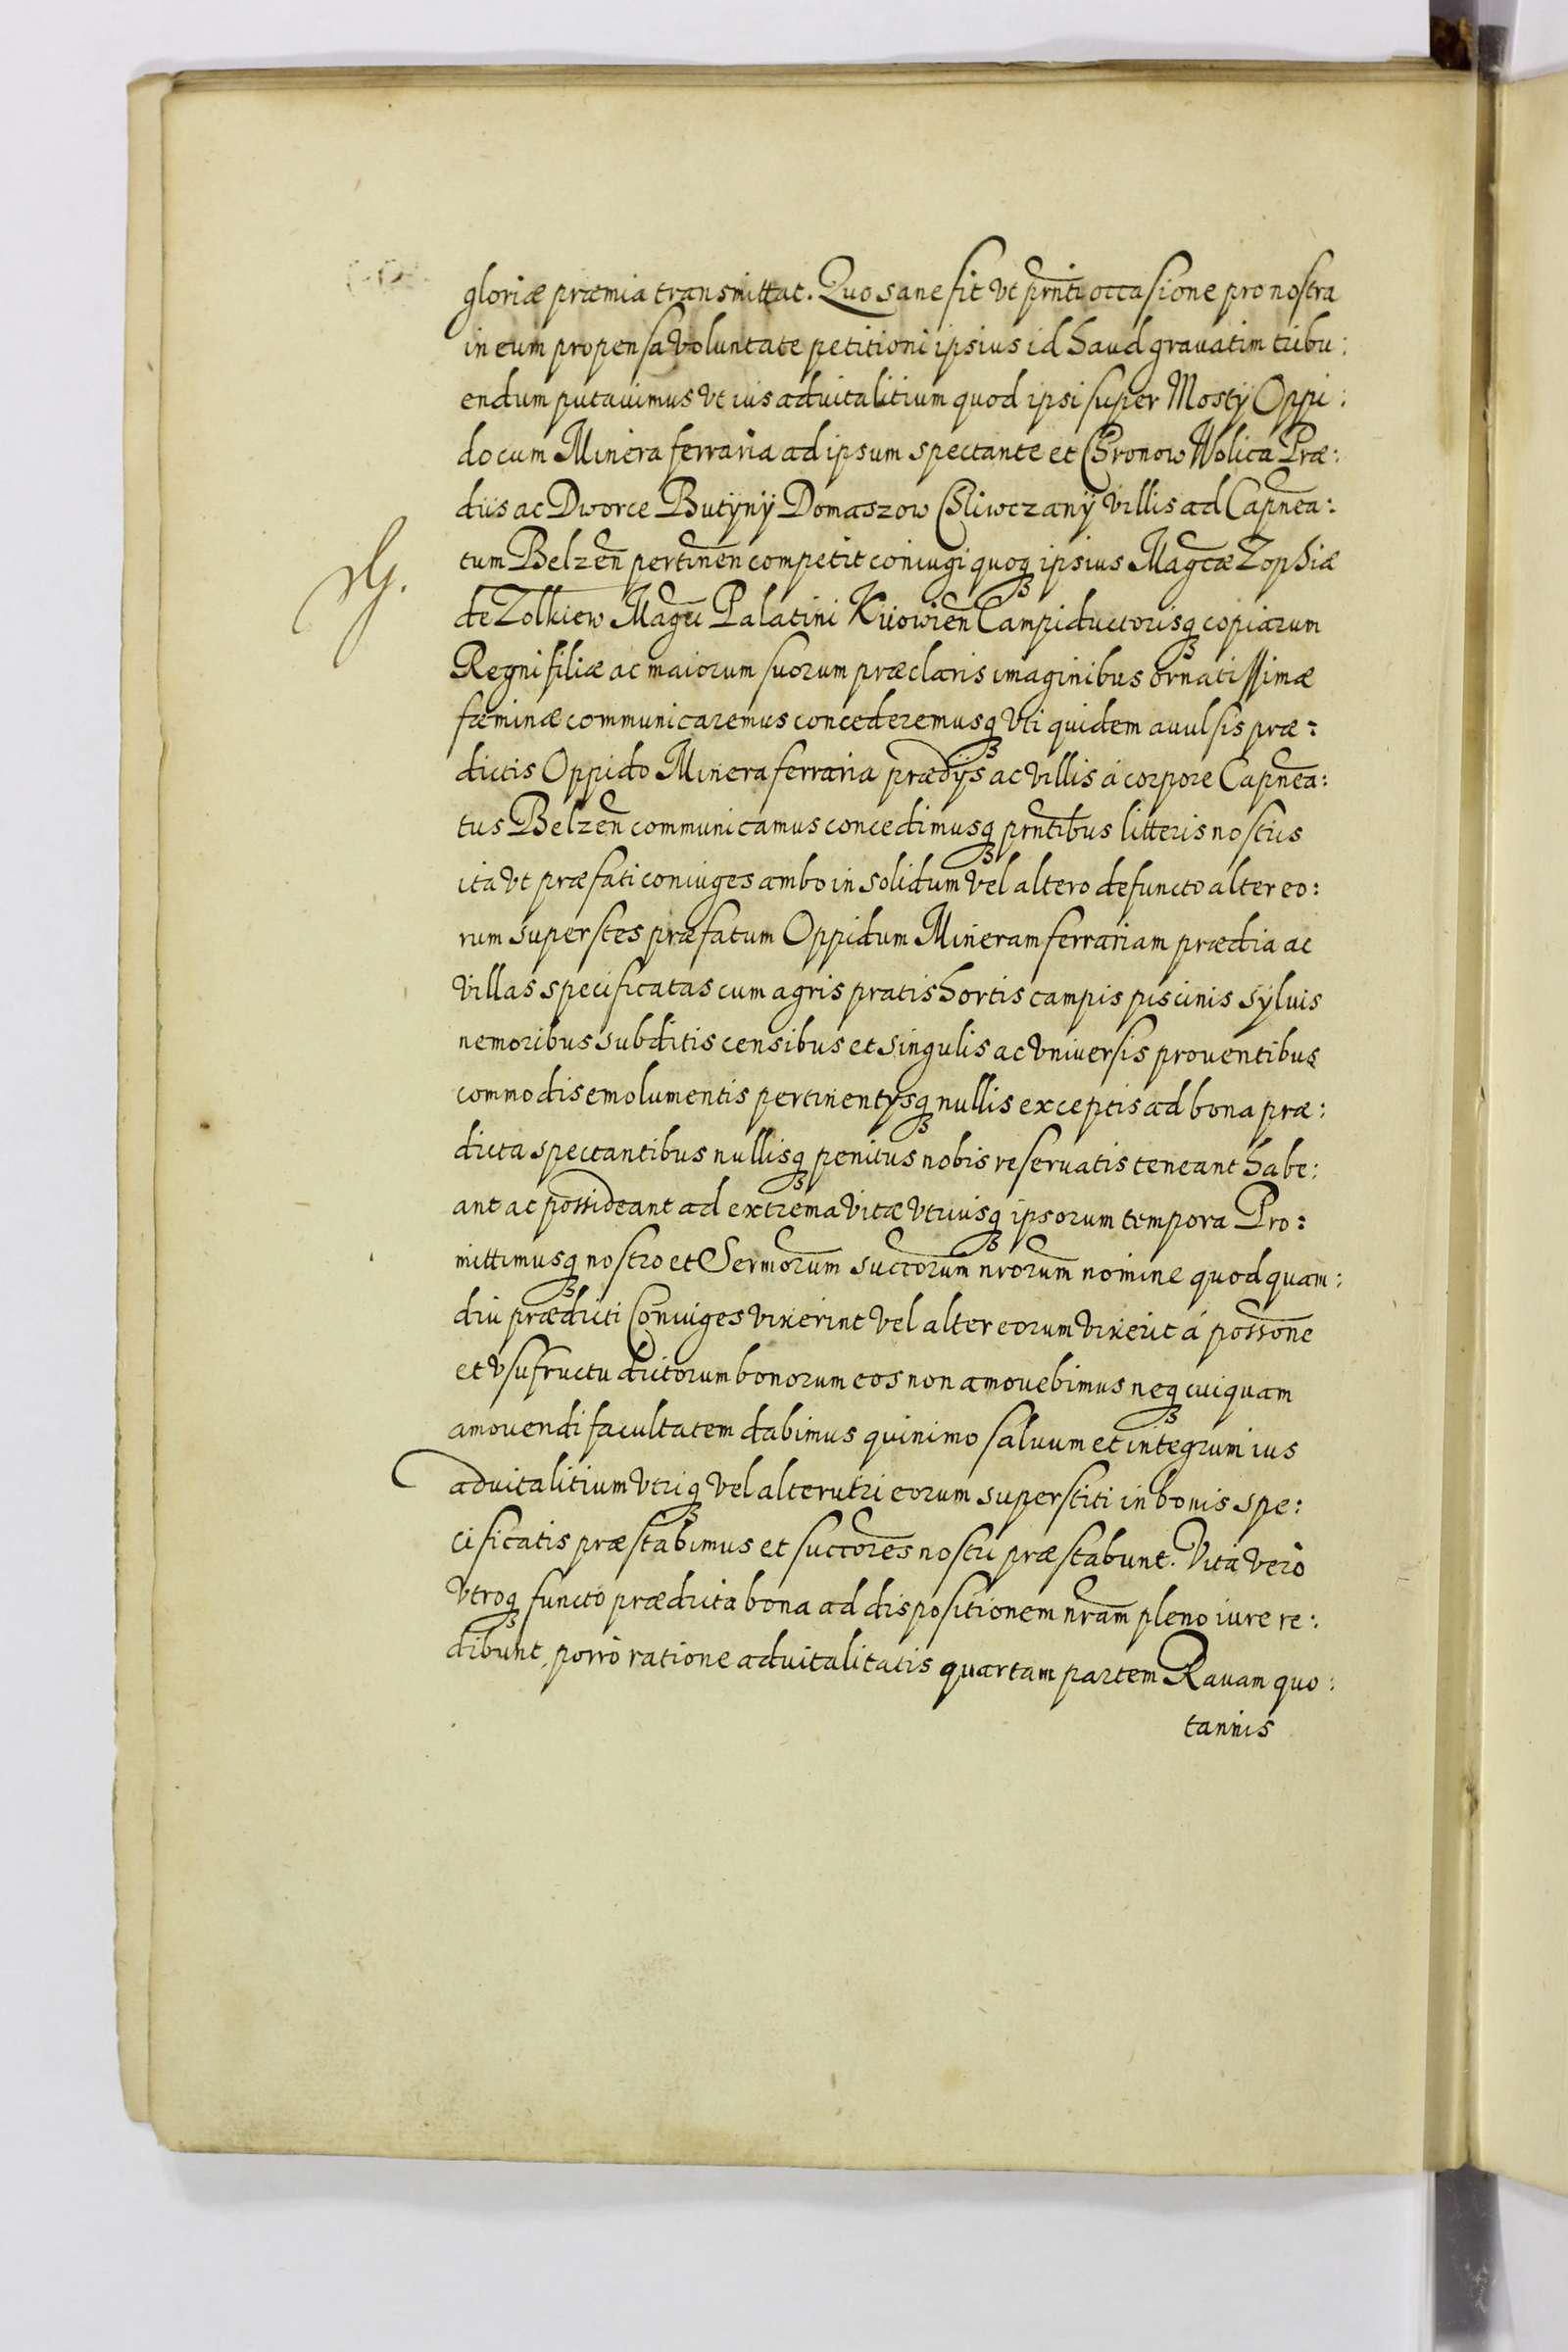 gloriæ præmia transmittat. Quo sane fit vt prnti occasione pro nostra
in eum propensa voluntate petitioni ipsius id haud grauatim tribu:
endum putauimus vt ius aduitalitium quod ipsi super Mosty Oppi:
do cum Minera ferraria ad ipsum spectante et Chronow Wolica Præ:
diis ac Dworce Butÿnÿ Domaszow Chliwczanÿ villis ad Capnea:
tum Belzen pertinen competit coniugi quoqȝ ipsius Magcæ Zophiæ
de Zolkiew Magci Palatini Kiiowien Campiductorisqȝ copiarum
Regni filiæ ac maiorum suorum præclaris imaginibus ornatissimæ
fæminæ communicaremus concederemusqȝ vti quidem auulsis præ:
dictis Oppido Minera ferraria prædÿs ac villis á corpore Capnea:
tus Belzen communicamus concedimusqȝ prntibus litteris nostris
ita vt præfati coniuges ambo in solidum vel altero defuncto alter eo:
rum superstes præfatum Oppidum Mineram ferrariam prædia ac
villas specificatas cum agris pratis hortis campis piscinis sÿluis
nemoribus subditis censibus et singulis ac vniuersis prouentibus
commodis emolumentis pertinentÿsqȝ nullis exceptis ad bona præ:
dicta spectantibus nullisqȝ penitus nobis reseruatis teneant habe:
ant ac possideant ad extrema vitæ vtriusqȝ ipsorum tempora Pro:
mittimusqȝ nostro et Sermorum succorum nrorum nomine quod quam:
diu prædicti Coniuges vixerint vel alter eorum vixerit á possone
et vsufructu dictorum bonorum eos non amouebimus neqȝ cuiquam
amouendi facultatem dabimus quinimo saluum et integrum ius
aduitalitium vtriqȝ vel alterutri eorum superstiti in bonis spe:
cificatis præstabimus et succores nostri præstabunt. Vita vero
vtroqȝ functo prædicta bona ad dispositionem nram pleno iure re:
dibunt, porro ratione aduitalitatis quartam partem Rauam quo:
tannis